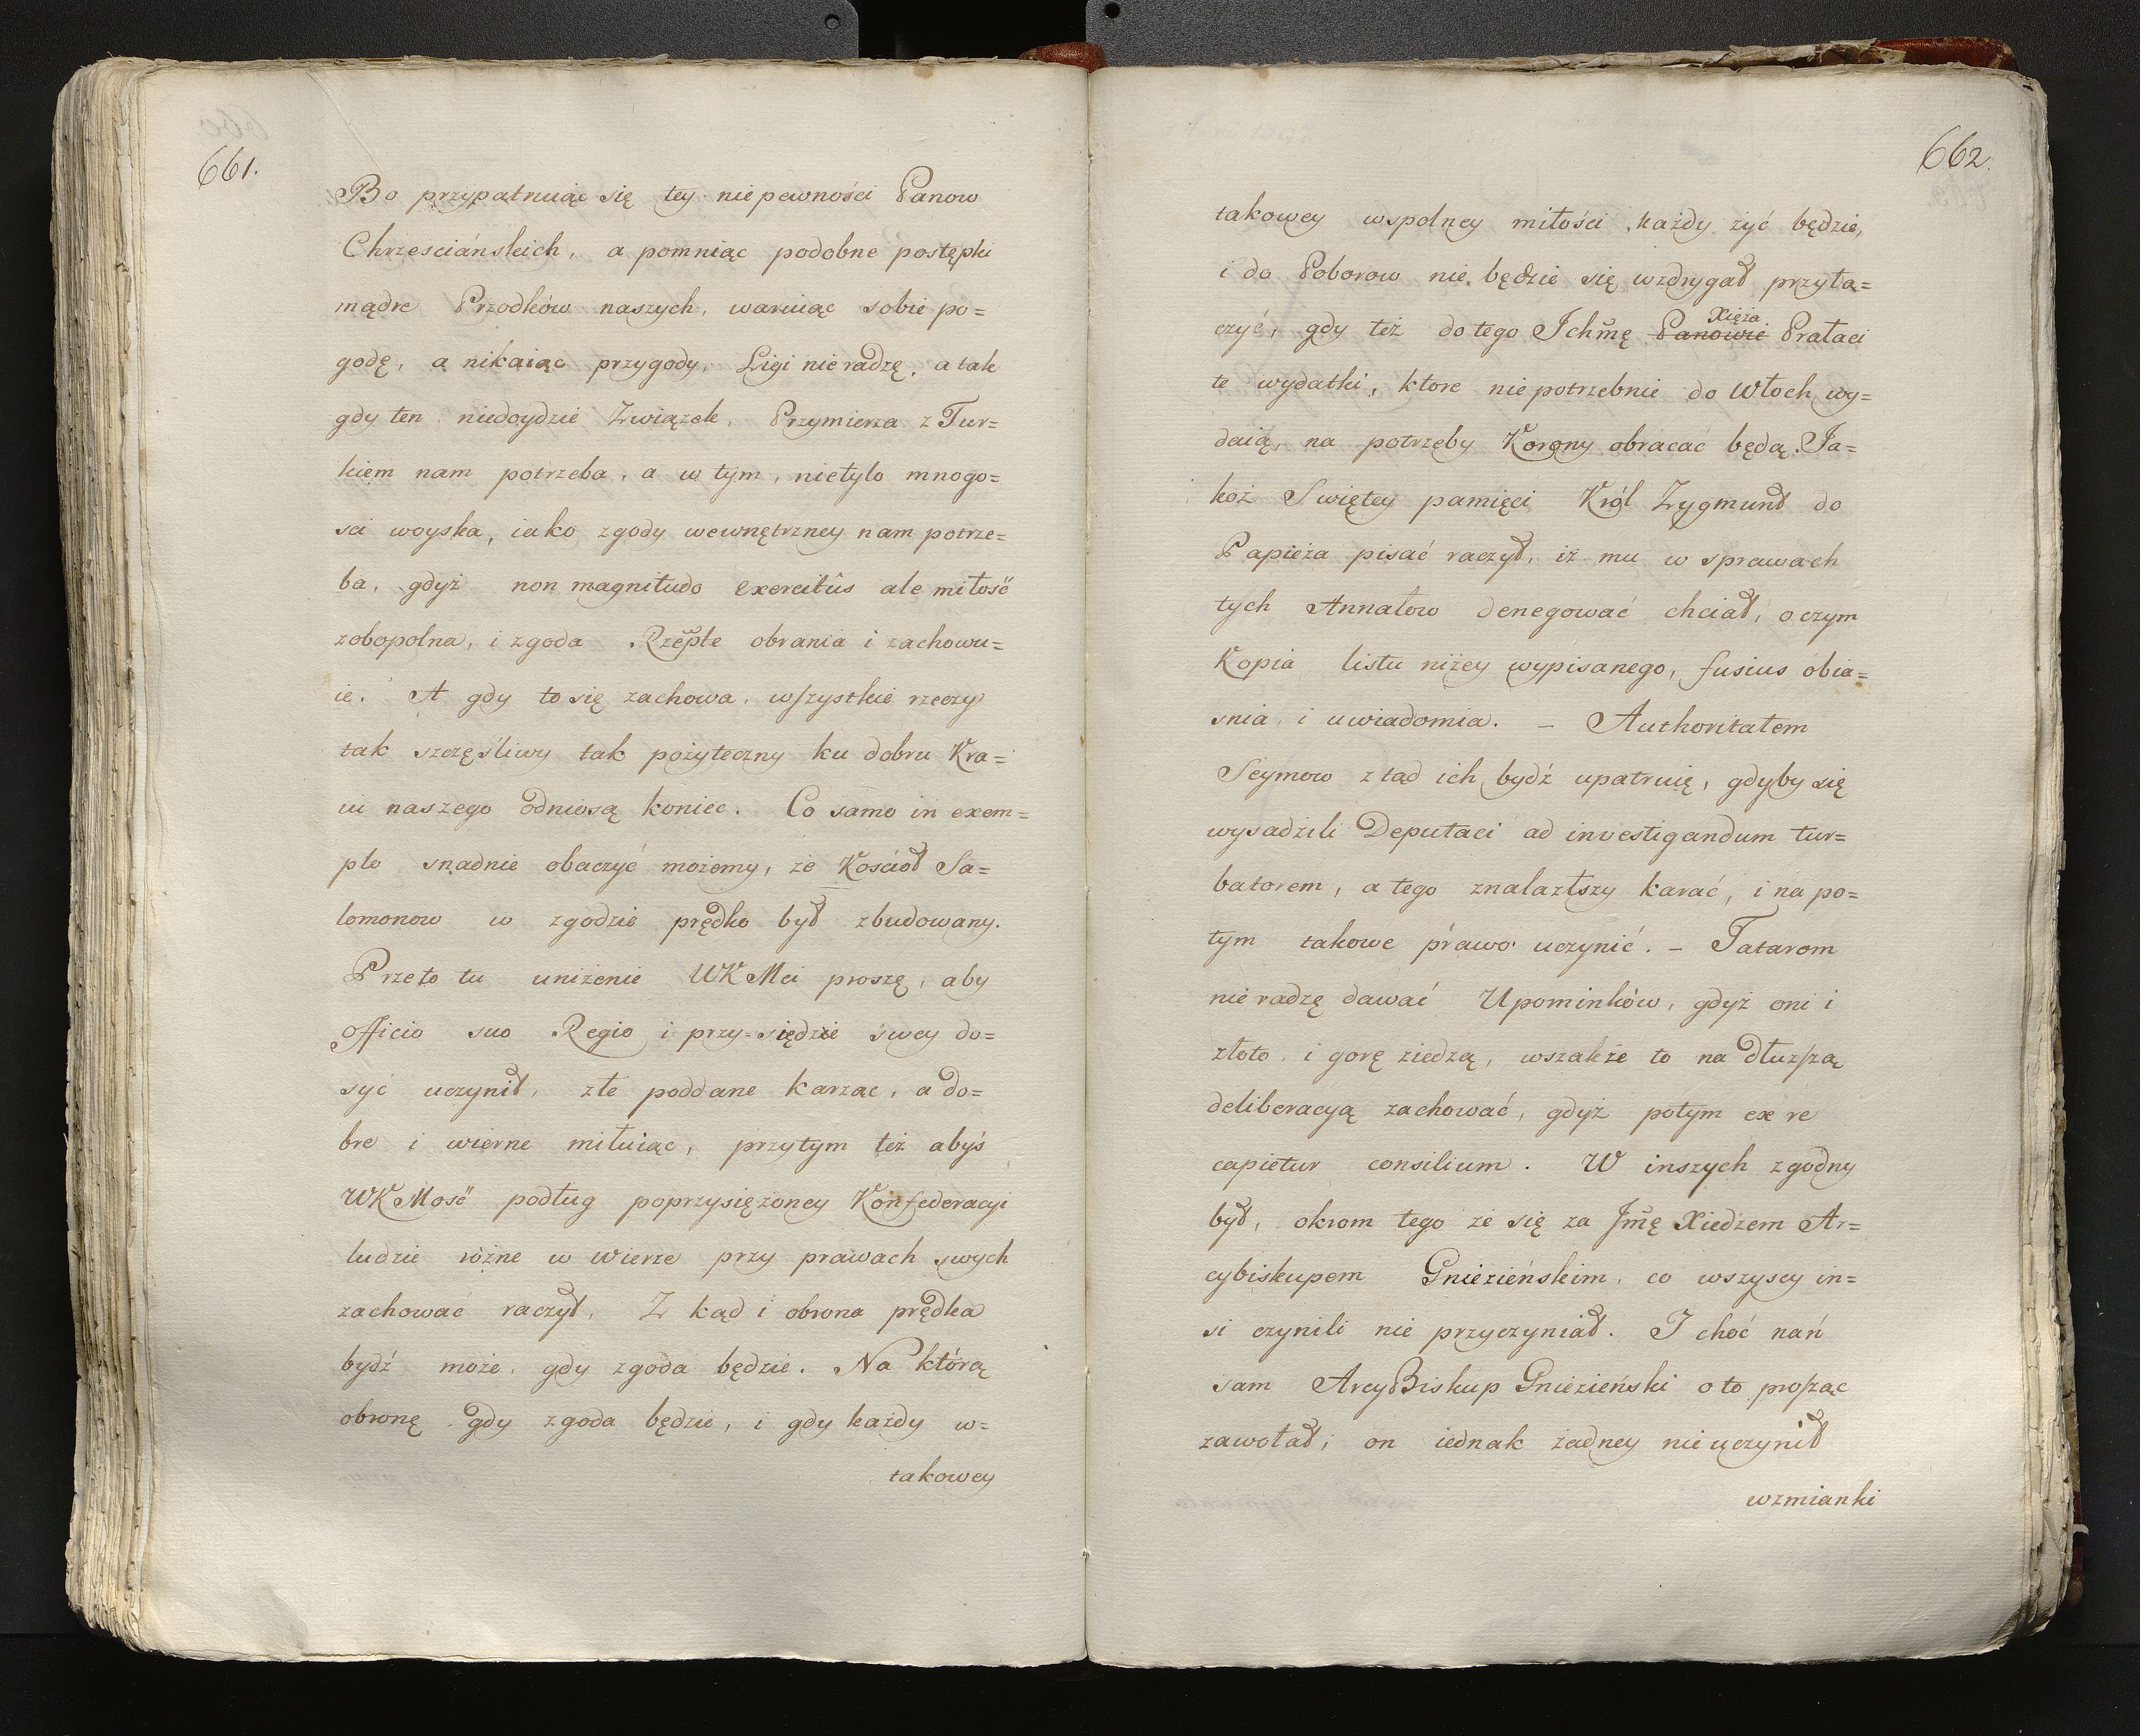 661.
Bo przypatruiąc się tey niepewności Panow
Chrzesciańskich, a pomniąc podobne postępki
mądre Przodków naszych, waruiąc sobie po=
godę, a nikaiąc przygody, Ligi nie radzę, a tak
gdy ten niedoydzie Związek, Przymierza z Tur=
kiem nam potrzeba, a w tym, nietylo mnogo=
sci woyska, iako zgody wewnętrzney nam potrze=
ba, gdyż non magnitudo exercitûs ale miłość
zobopolna, i zgoda Rzepte obrania i zachowu=
ie. A gdy to się zachowa, wszystkie rzeczy
tak szczęśliwy tak pożyteczny ku dobru Kra=
iu naszego odniosą koniec. Co samo in exem=
plo snadnie obaczyć możemy, że Kościoł Sa=
lomonow w zgodzie prędko był zbudowany.
Przeto tu uniżenie WKMci proszę, aby
officio suo Regio i przy=siędzie swey do=
syć uczynił, złe poddane karząc, a do=
bre i wierne miłuiąc, przytym też abyś
WKMość podług poprzysiężoney Konfederacyi
ludzie różne w Wierze przy prawach swych
zachować raczył, Z kąd i obrona prędka
bydź może, gdy zgoda będzie. Na którą
obronę gdy zgoda będzie, i gdy każdy w=
takowey
662.
takowey wspolney miłości każdy żyć będzie,
i do Poborow nie będzie się wzdrygał przyłą=
czyć, gdy też do tego Ichmę Panowie Xięża Prałaci
te wydatki, ktore niepotrzebnie do Włoch wy=
daią, na potrzeby Korony obracać będą. Ja=
koż Swiętey pamięci Król Zygmunt do
Papieża pisać raczył, iż mu w sprawach
tych Annatow denegować chciał, o czym
Kopia listu niżey wypisanego, fusius obia=
snia, i uwiadomia. – Authoritatem
Seymow ztąd ich bydź upatruię, gdyby się
wysadzili Deputaci ad investigandum tur=
batorem, a tego znalazłszy karać, i na po=
tym takowe prawo uczynić. – Tatarom
nie radzę dawać Upominków, gdyż oni i
złoto i gorę ziedzą, wszakże to na dłuższą
deliberacyą zachować, gdyż potym ex re
capietur consilium. W inszych zgodny
był, okrom tego że się za Jmę Xiedzem Ar=
cybiskupem Gnieźieńskim, co wszyscy in=
si czynili nie przyczyniał. I choć nań
sam ArcyBiskup Gnieźieński o to prosząc
zawołał, on iednak żadney nie uczynił
wzmianki